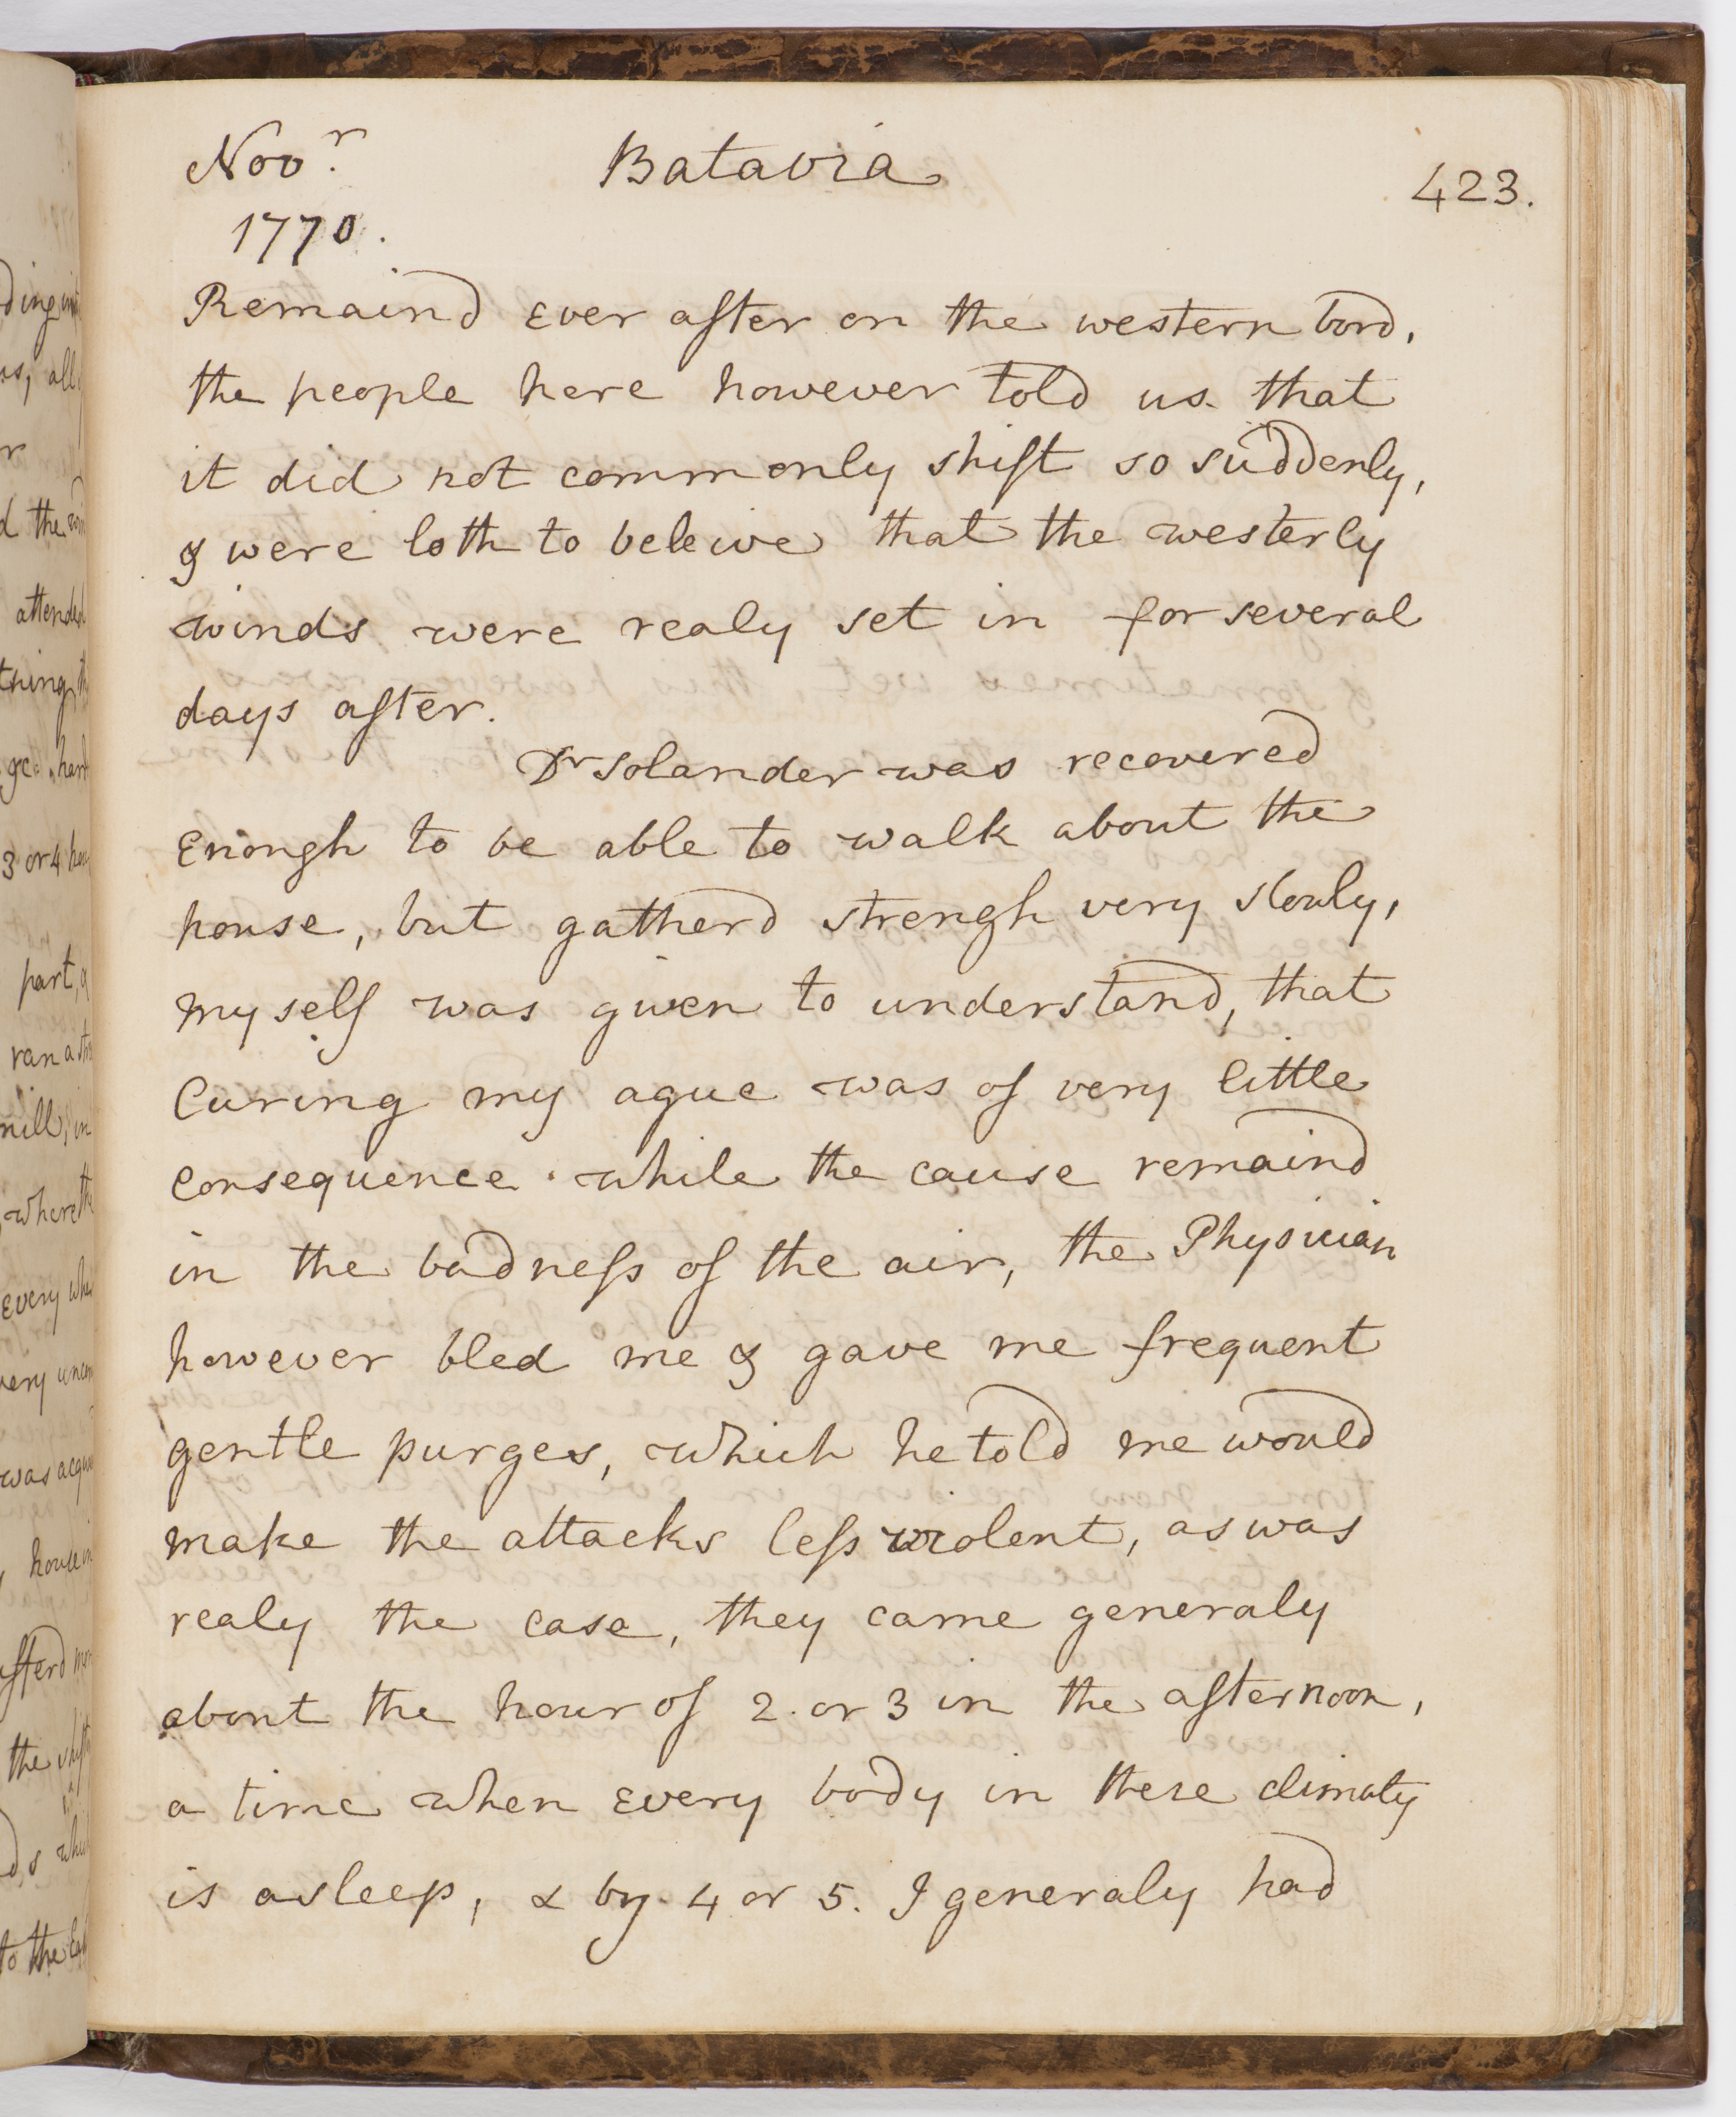 Novr. Batavia 423.
1770.
Remaind ever after on the western bord,
the people here however told us that
it did not commonly shift so suddenly,
& were loth to beleive that the westerly
winds were realy set in for several
days after.
Dr Solander was recovered
enough to be able to walk about the
house, but gatherd strengh very slowly,
myself was given to understand, that
Curing my ague was of very little
consequence while the cause remaind
in the badness of the air, the Physician
however bled me & gave me frequent
gentle purges, which he told me would
make the attacks less violent, as was
realy the case, they came generaly
about the hour of 2 or 3 in the afternoon,
a time when every body in these climates
is asleep, & by 4 or 5. I generaly had